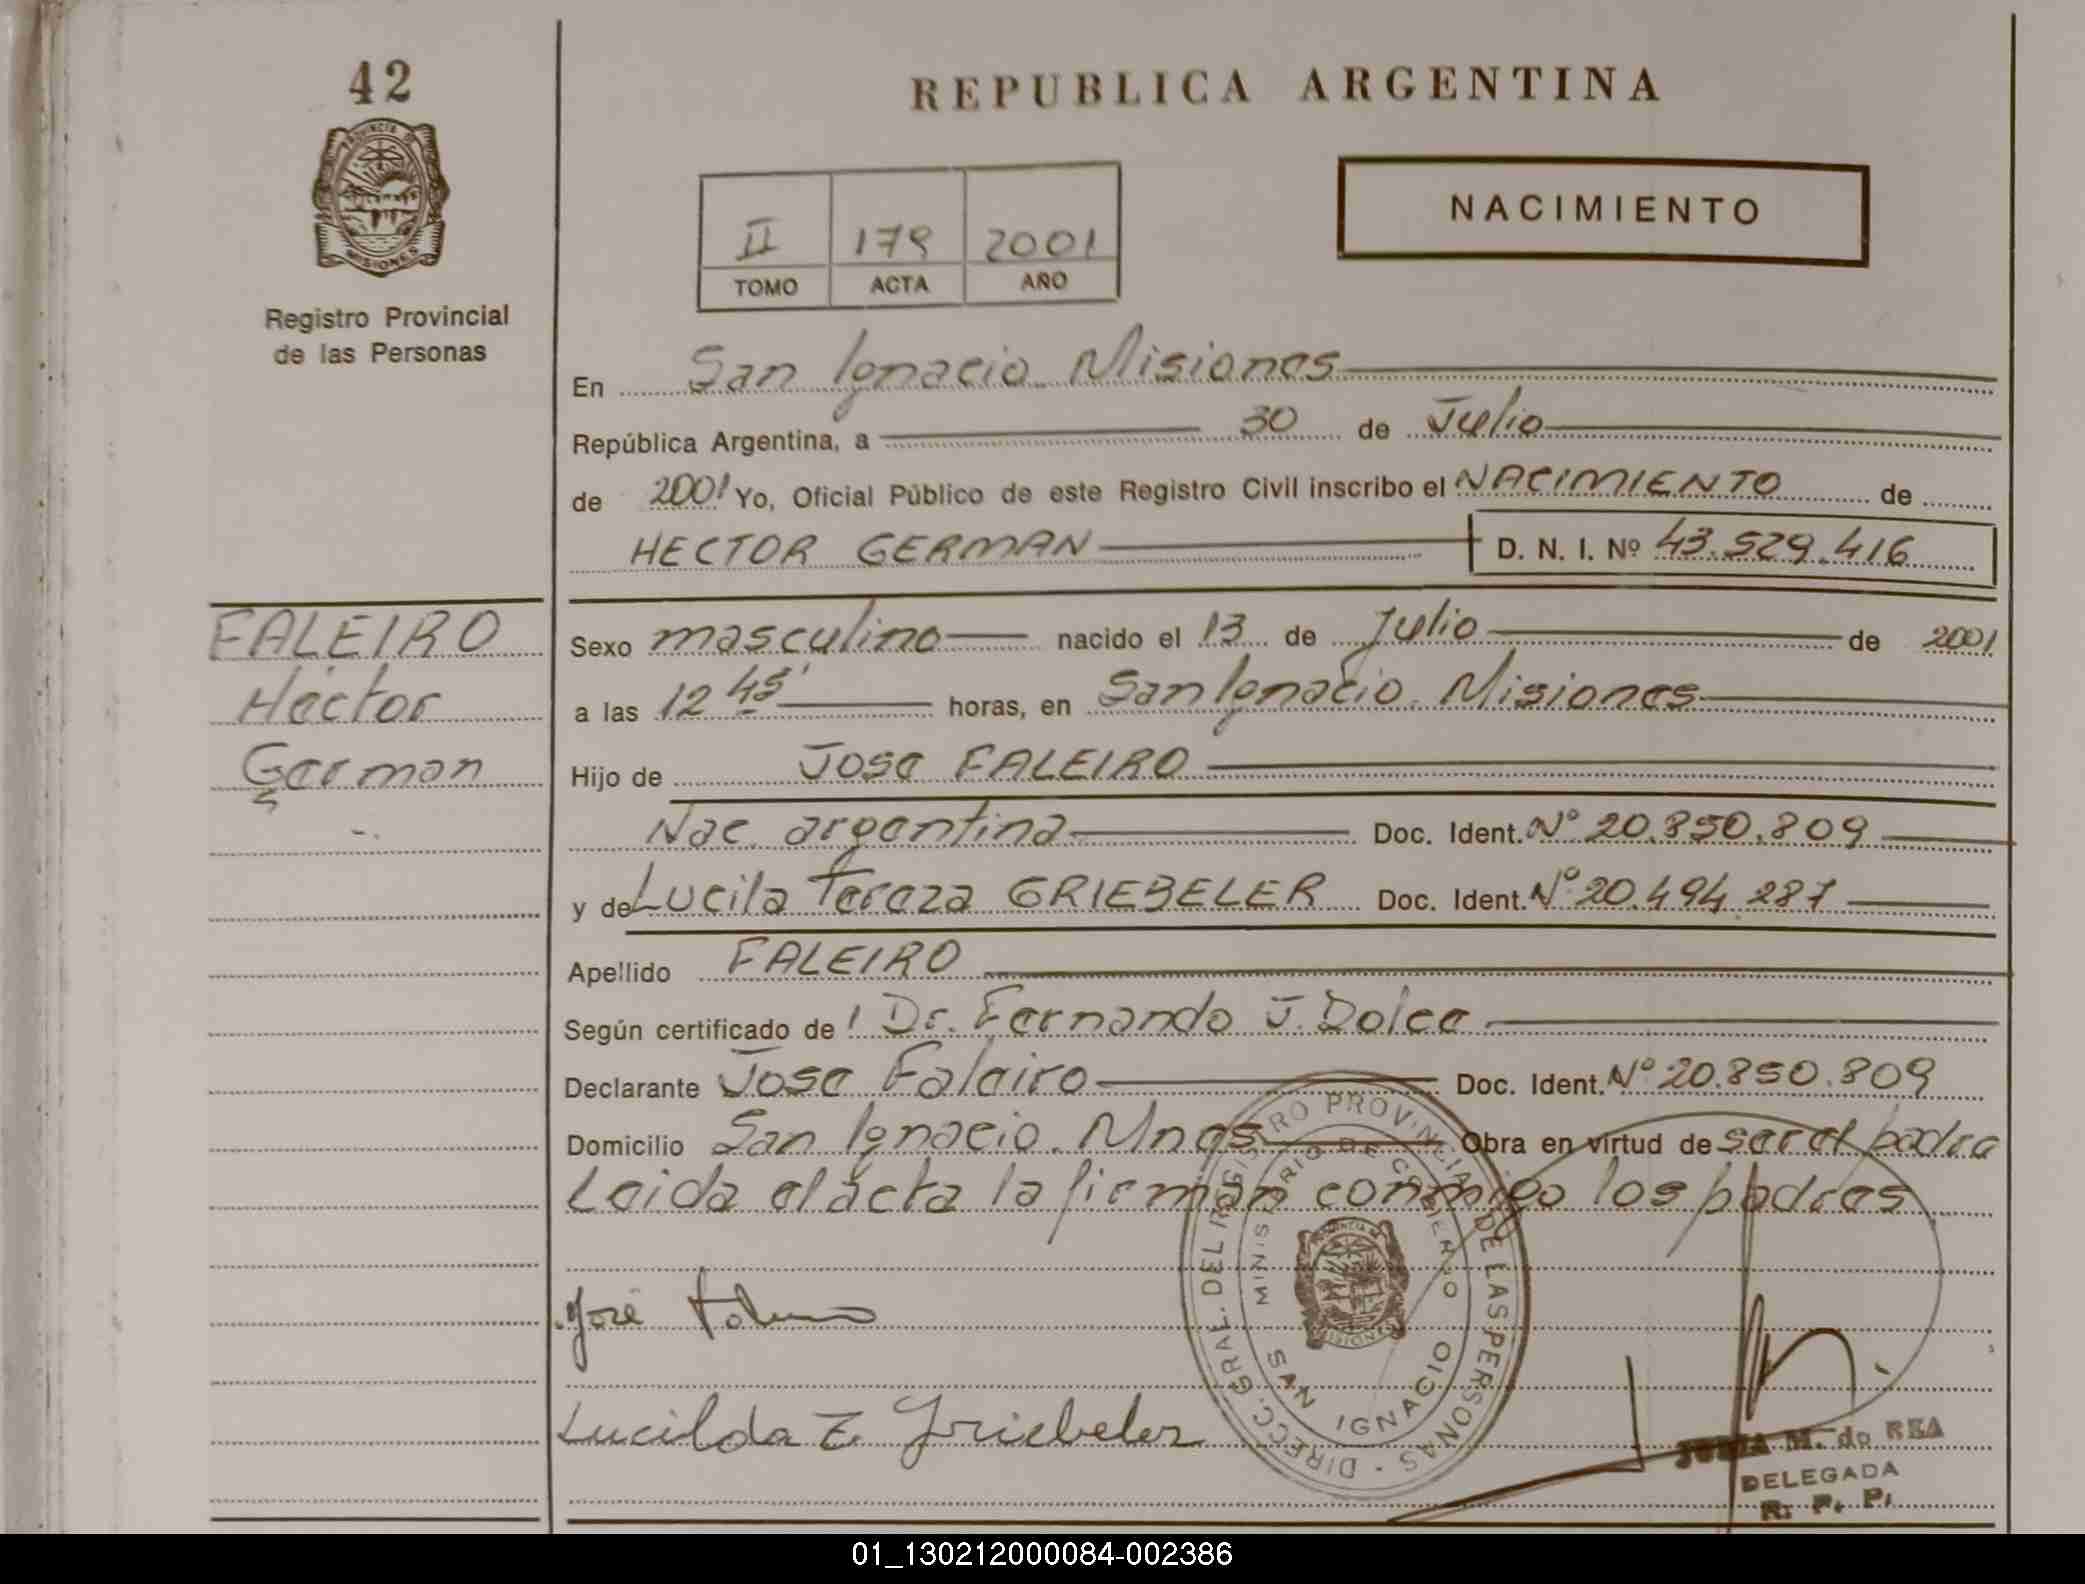 42
PROVINCIA DE
MISIONES
Registro Provincial
de las Personas
REPUBLICA ARGENTINA
NACIMIENTO
II 179 2001
TOMO ACTA AÑO
En San Ignacio Misiones
República Argentina, a 30 de Julio
de 2001 Yo, Oficial Público de este Registro Civil inscribo el NACIMIENTO de
HECTOR GERMAN D. N. I. Nº 43.529.416
FALEIRO
Hector
German
Sexo masculino nacido el 13 de Julio de 2001
a las 12 45' horas, en San Ignacio. Misiones
Hijo de Jose FALEIRO
Nac. argentina Doc. Ident. Nº 20.850.809
y de Lucila Tereza GRIEBELER Doc. Ident. Nº 20.494.287
Apellido FALEIRO
Según certificado de Dr. Fernando J. Dolce
Declarante Jose Faleiro Doc. Ident. Nº 20.850.809
Domicilio San Ignacio. Mnes Obra en virtud de ser el padre
Leida el acta la firman conmigo los padres
José
Lucilda T. Griebeler
DIRECC. GRAL. DEL REGISTRO PROVINCIAL DE LAS PERSONAS
MINISTERIO DE GOBIERNO
SAN IGNACIO
MISIONES
M. do REA
DELEGADA
R. P. P.
01_130212000084-002386